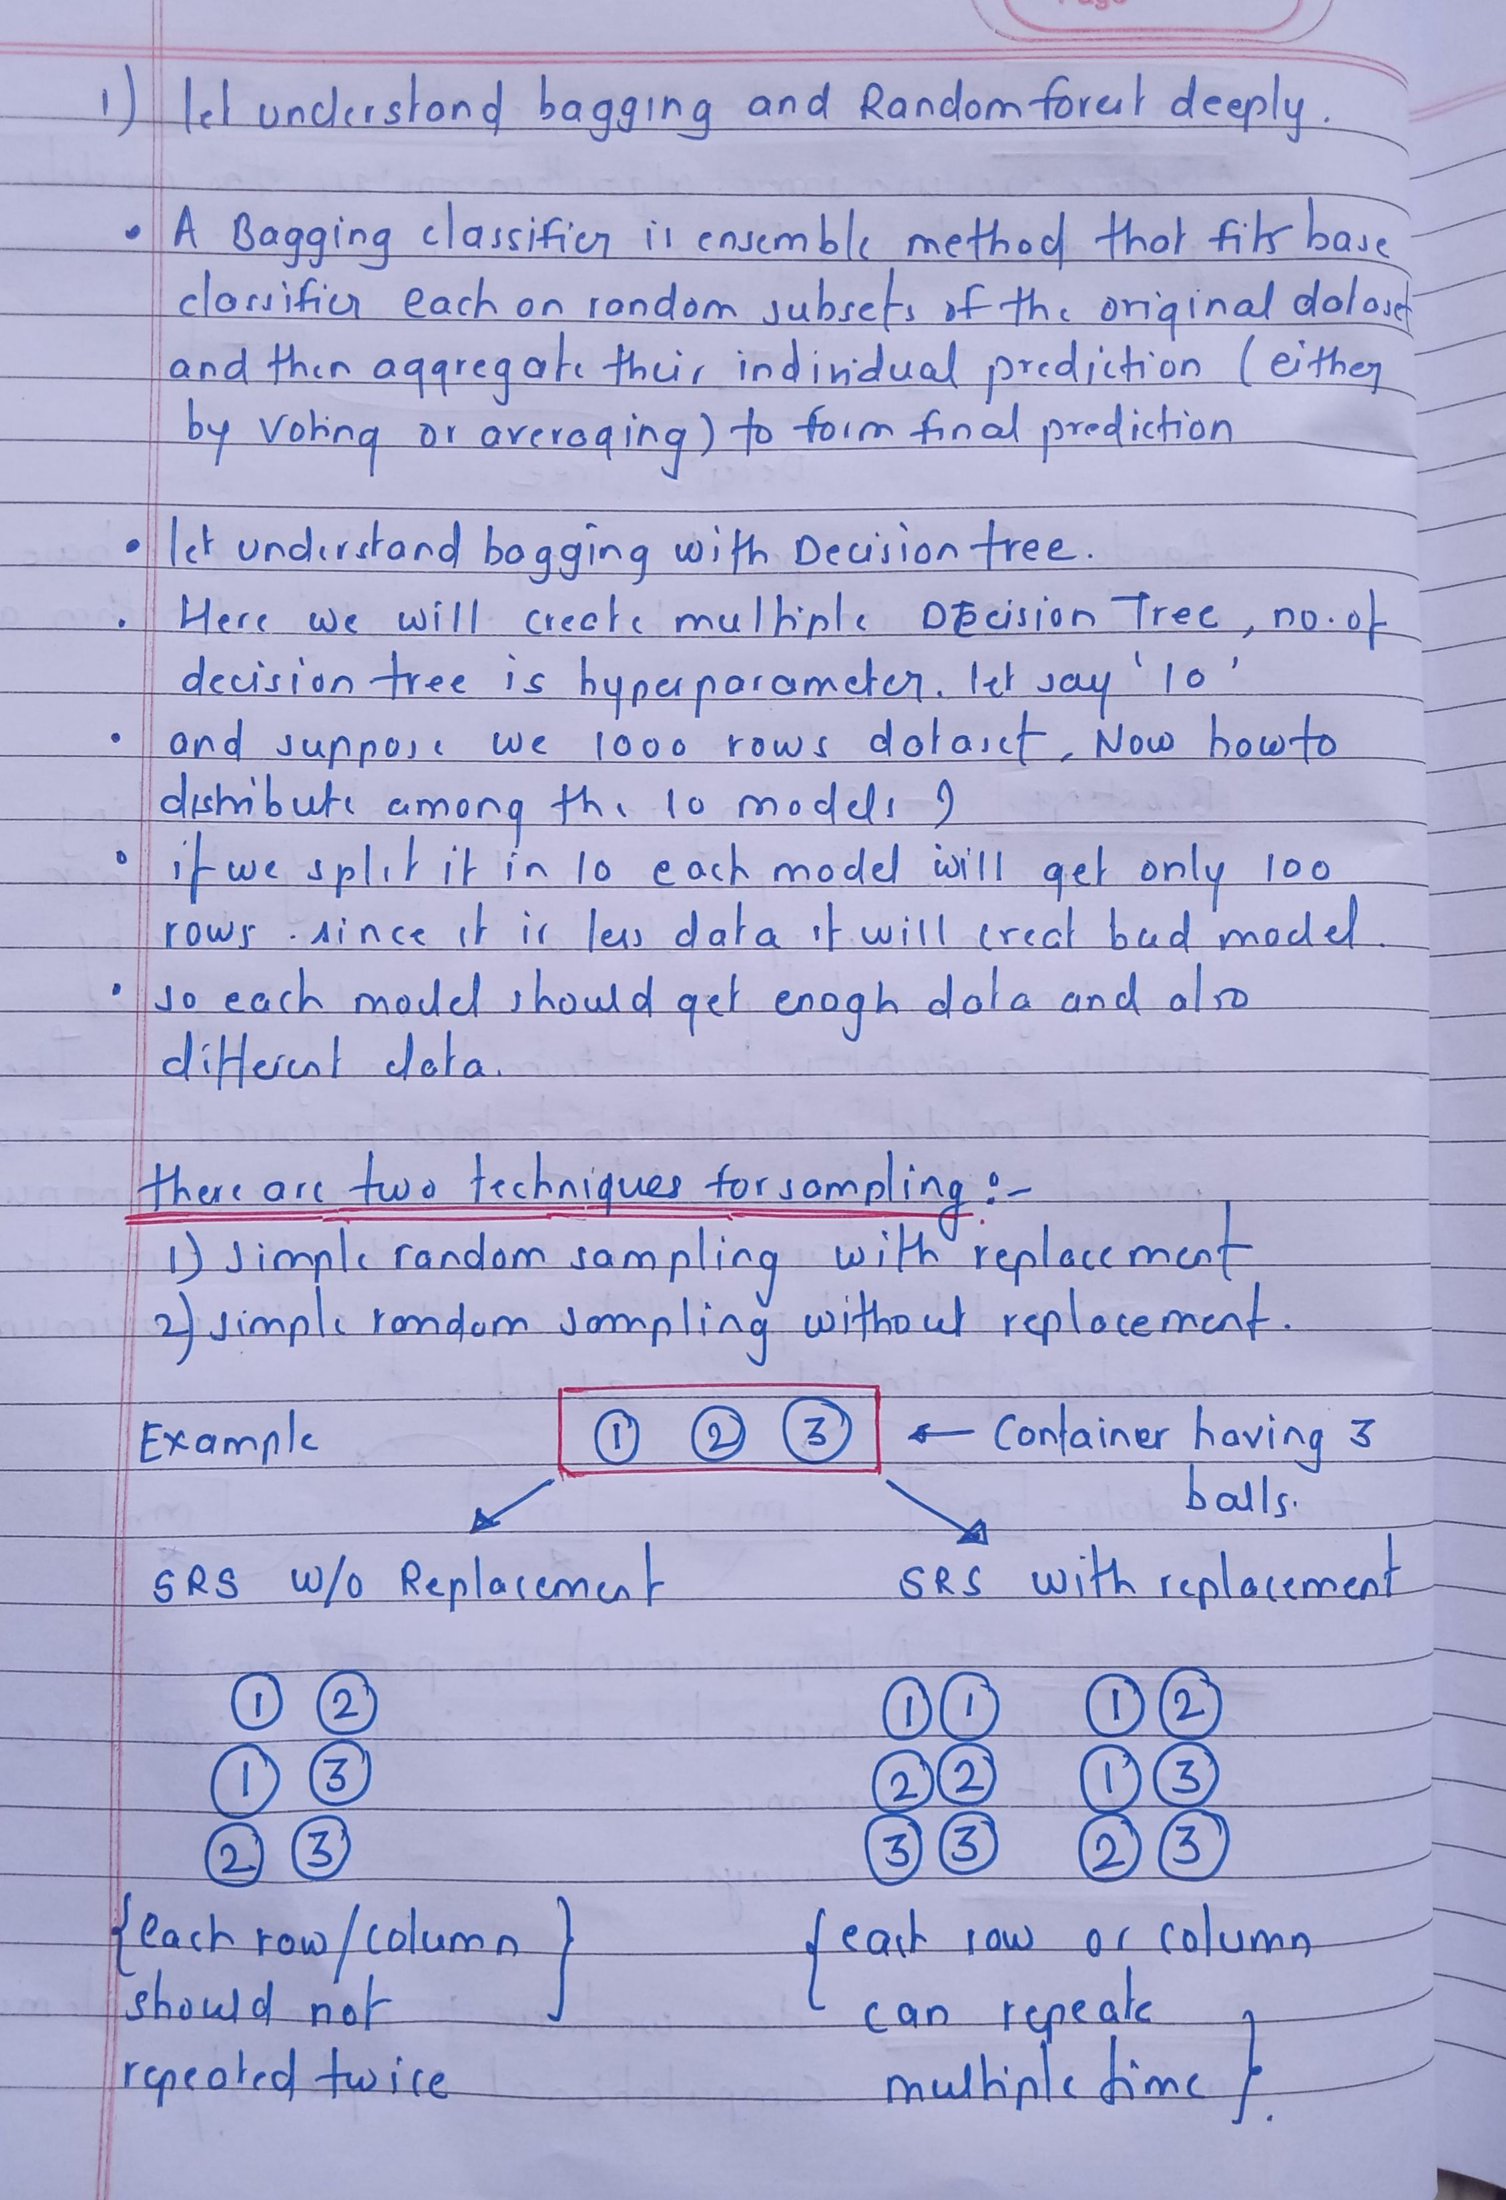 Page
1) let understand bagging and Random forest deeply.
• A Bagging classifier is ensemble method that fits base
classifier each on random subsets of the original dataset
and then aggregate their individual prediction (either
by voting or averaging) to form final prediction
• let understand bagging with Decision tree.
• Here we will create multiple Decision Tree, no. of
decision tree is hyperparameter. let say '10'
• and suppose we 1000 rows dataset, Now how to
distribute among the 10 models ?
• if we split it in 10 each model will get only 100
rows. since it is less data it will creat bad model.
• so each model should get enogh data and also
different data.
there are two techniques for sampling :-
1) simple random sampling with replacement
2) simple random sampling without replacement.
Example 1 2 3 ← Container having 3
balls.
SRS w/o Replacement SRS with replacement
1 2 1 1 1 2
1 3 2 2 1 3
2 3 3 3 2 3
{each row/column} {each row or column
should not can repeate
repeated twice multiple time}.